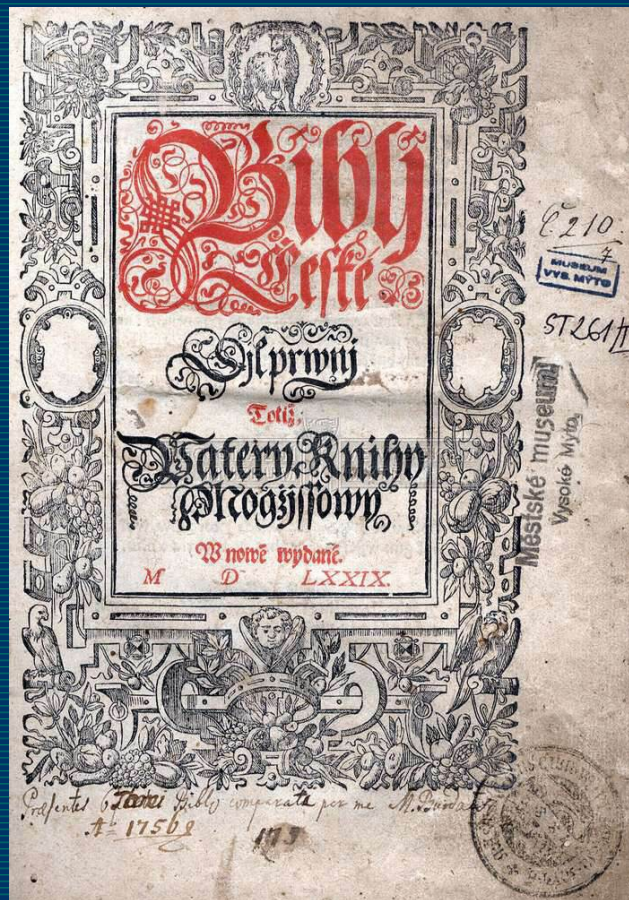 Biblj
Cžeské
Djl prwnj
Totiž,
Patery Knihy
Mogžjssowy
W nowě wydané.
M D LXXIX.
Č 210
7
MUSEUM
VYS. MÝTO
ST261/I
Městské museum
Vysoké Mýto.
Præsentes 6 Biblj comparata per me M.
A 1756
175